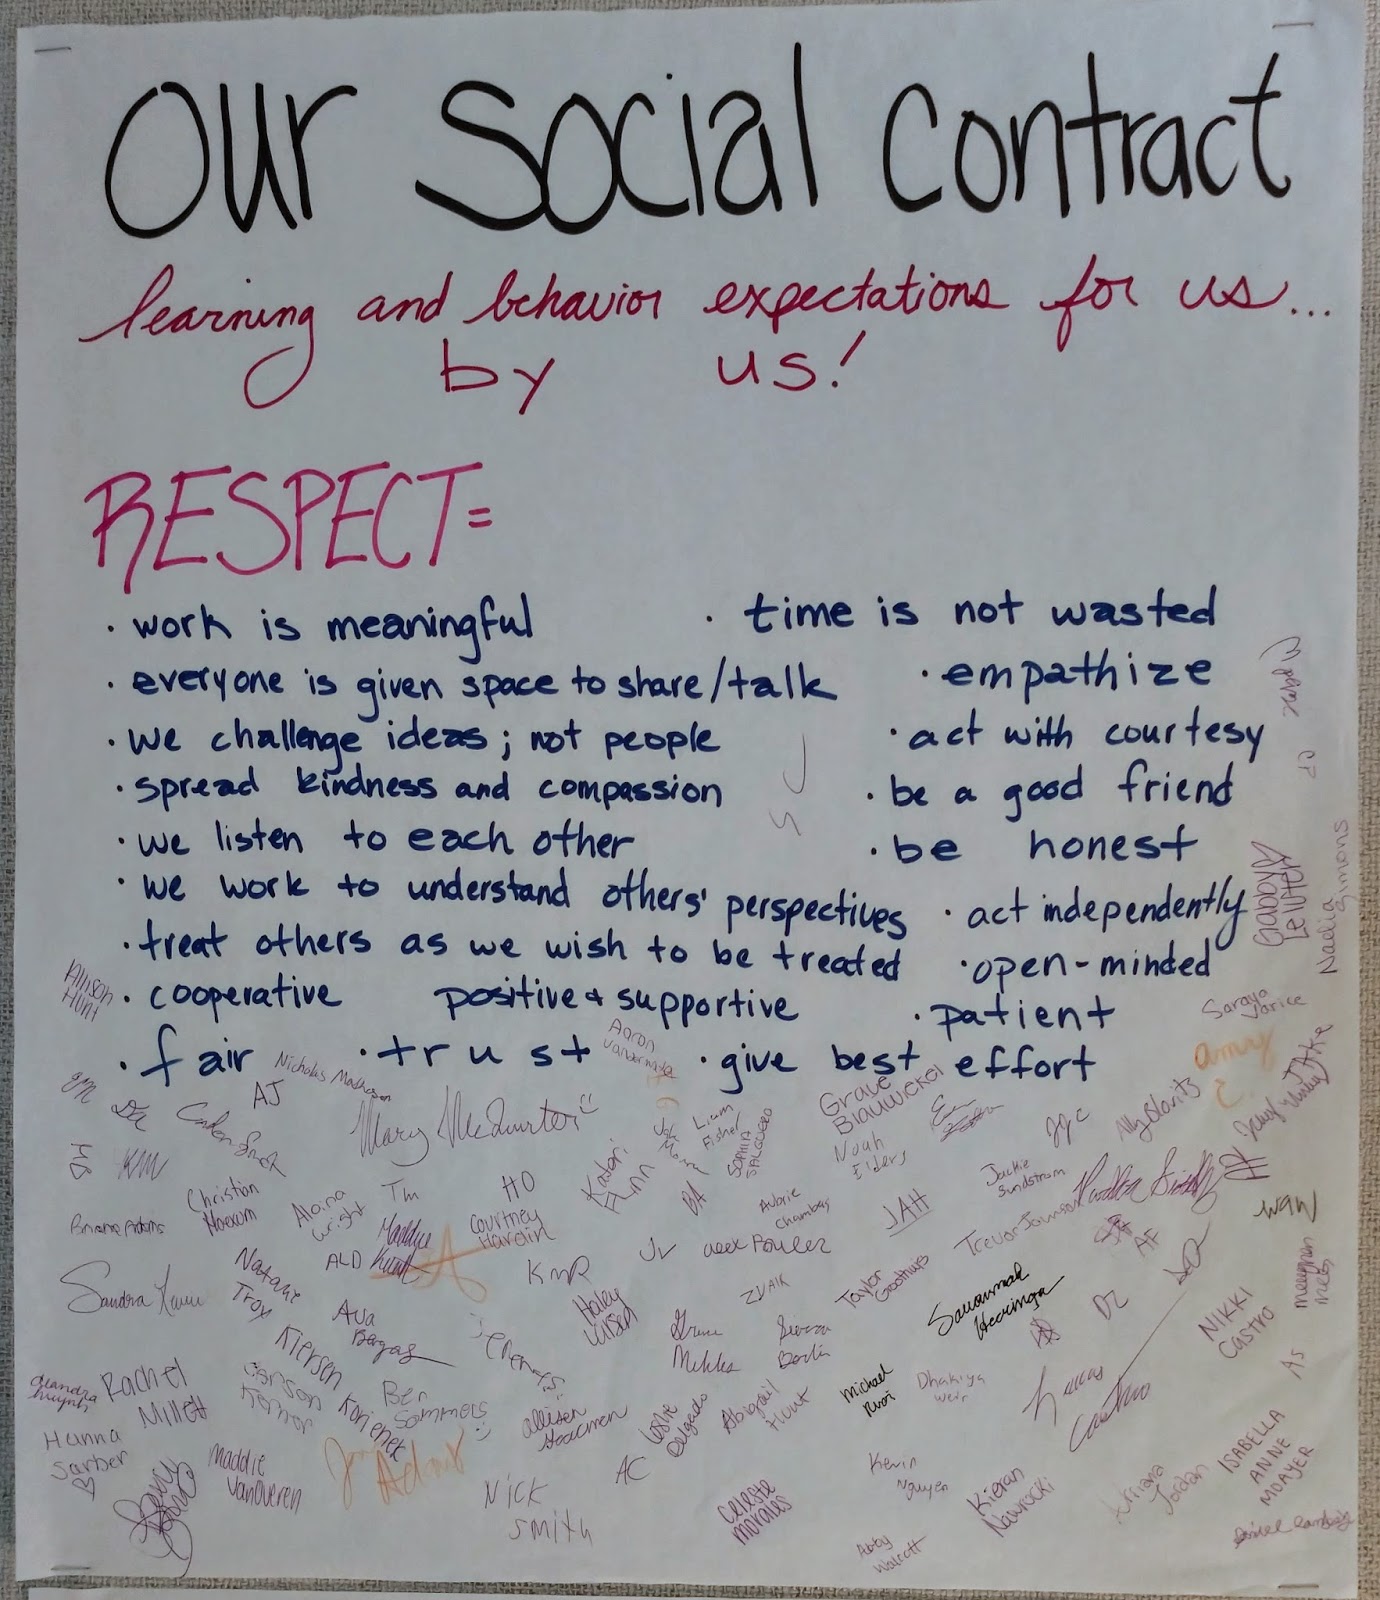 Our Social Contract
learning and behavior expectations for us...
by us!
RESPECT=
· work is meaningful
· time is not wasted
· everyone is given space to share/talk
· empathize
· we challenge ideas; not people
· act with courtesy
· spread kindness and compassion
· be a good friend
· we listen to each other
· be honest
· we work to understand others' perspectives
· act independently
· treat others as we wish to be treated
· open-minded
· cooperative
positive & supportive
· patient
· fair
· trust
· give best effort
Allison
Hunt
Nadia
Simons
Gabby
CP
Saraya
Aaron
Nicholas
AJ
Mary McWhorter
Liam
Fisher
Sophia
Salguero
Grace
Noah
Elders
Jackie
Sundstrom
KM
Christian
Alaina
Wright
TM
HO
Katori
Flynn
BA
Aubrie
Chambers
JAH
Trevor Johnson
AF
WGW
Maddie
Courtney
Hardin
ALD
KMR
JV
Alex
Natalie
Troy
Ava
Haley
ZVAIK
Taylor
Savannah
Heeringa
DZ
NIKKI
CASTRO
AS
Sandra
Kiersen
Korienek
Carson
Ben
Sommers
Rachel
Millett
Hanna
Sarber
Maddie
VanOveren
Nick
Smith
AC
Leslie
Delgado
Abigail
Hunt
Michael
Dhakiya
Weir
Lucas
Castro
Celeste
Morales
Kevin
Nguyen
Kieran
Nawrocki
Abby
Walcott
Jordan
ISABELLA
ANNE
MOAYER